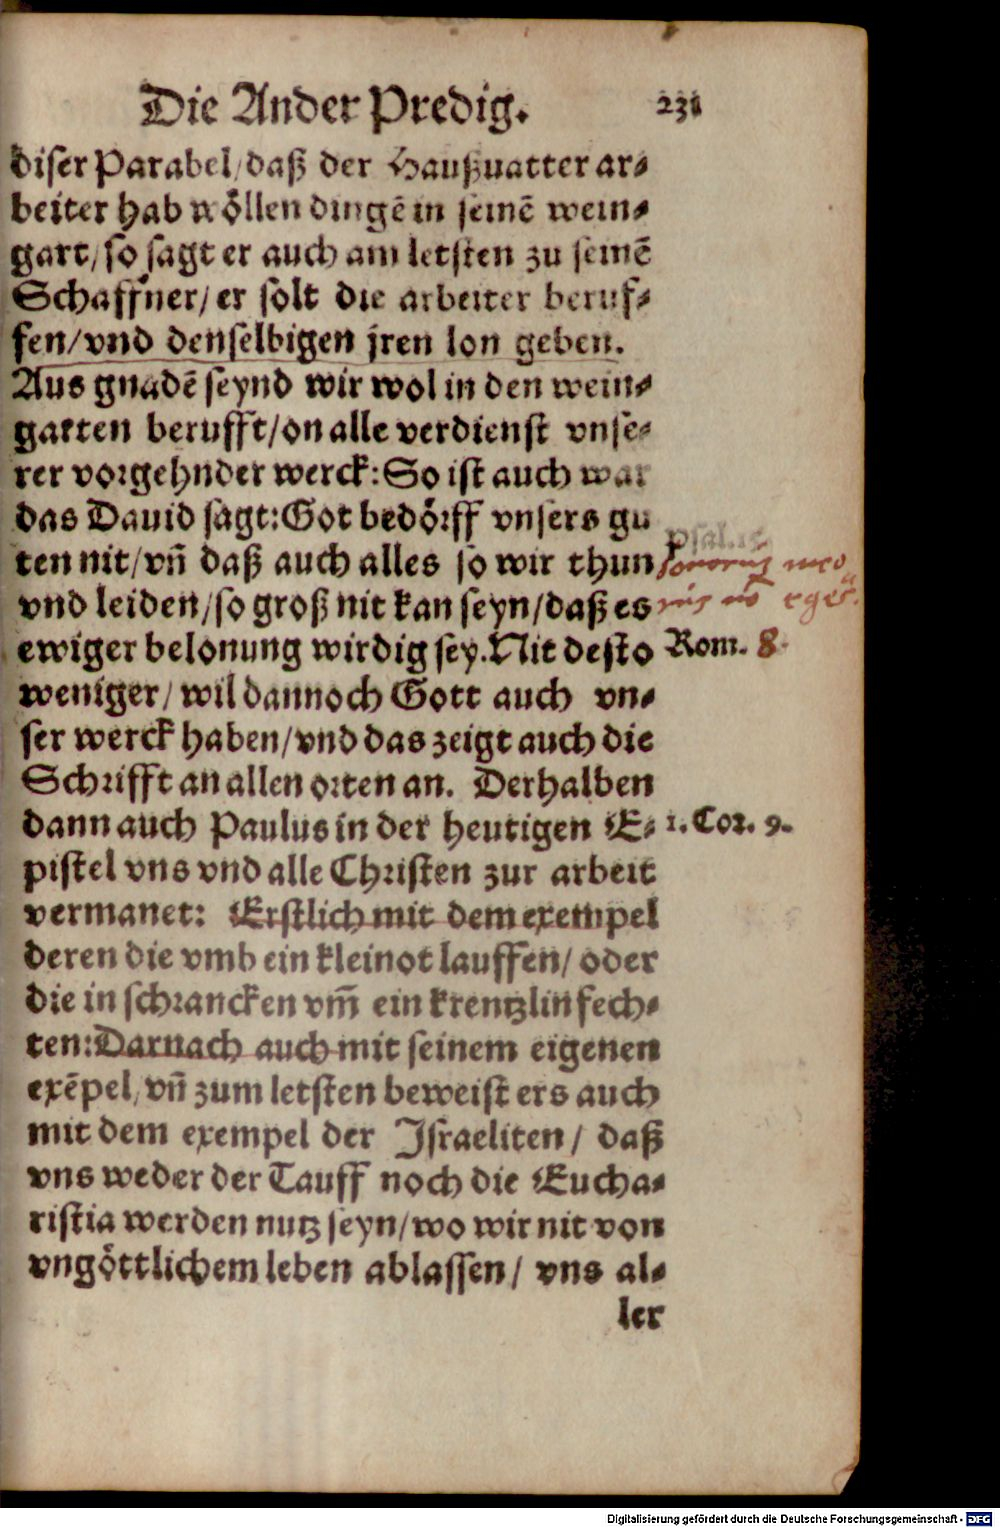 Die Ander Predig. 231
diser Parabel/daß der Haußuatter ar-
beiter hab wöllen dingē in seinē wein-
gart/so sagt er auch am letsten zu seinē
Schaffner/er solt die arbeiter beruf-
fen/vnd denselbigen jren lon geben.
Aus gnadē seynd wir wol in den wein-
garten berufft/on alle verdienst vnse-
rer vorgehnder werck: So ist auch war
das Dauid sagt: Got bedörff vnsers gu
ten nit/vñ daß auch alles so wir thun
Psal.15.
bonorum meo
vnd leiden/so groß nit kan seyn/daß es
eges.
ewiger belonung wirdig sey. Nit desto
Rom. 8.
weniger/wil dannoch Gott auch vn-
ser werck haben/vnd das zeigt auch die
Schrifft an allen orten an. Derhalben
dann auch Paulus in der heutigen E-
1. Cor. 9.
pistel vns vnd alle Christen zur arbeit
vermanet: Erstlich mit dem exempel
deren die vmb ein kleinot lauffen/oder
die in schrancken vm̄ ein krentzlin fech-
ten: Darnach auch mit seinem eigenen
exēpel/vñ zum letsten beweist ers auch
mit dem exempel der Israeliten/daß
vns weder der Tauff noch die Eucha-
ristia werden nutz seyn/wo wir nit von
vngöttlichem leben ablassen/vns al-
ler
Digitalisierung gefördert durch die Deutsche Forschungsgemeinschaft - DFG